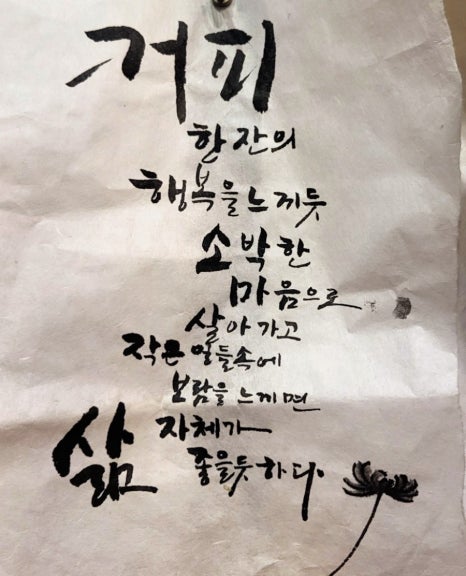 커피
한 잔의
행복을 느끼듯
소박한
마음으로
살아가고
작은 일들속에
보람을 느끼면
삶 자체가
좋을듯 하다.